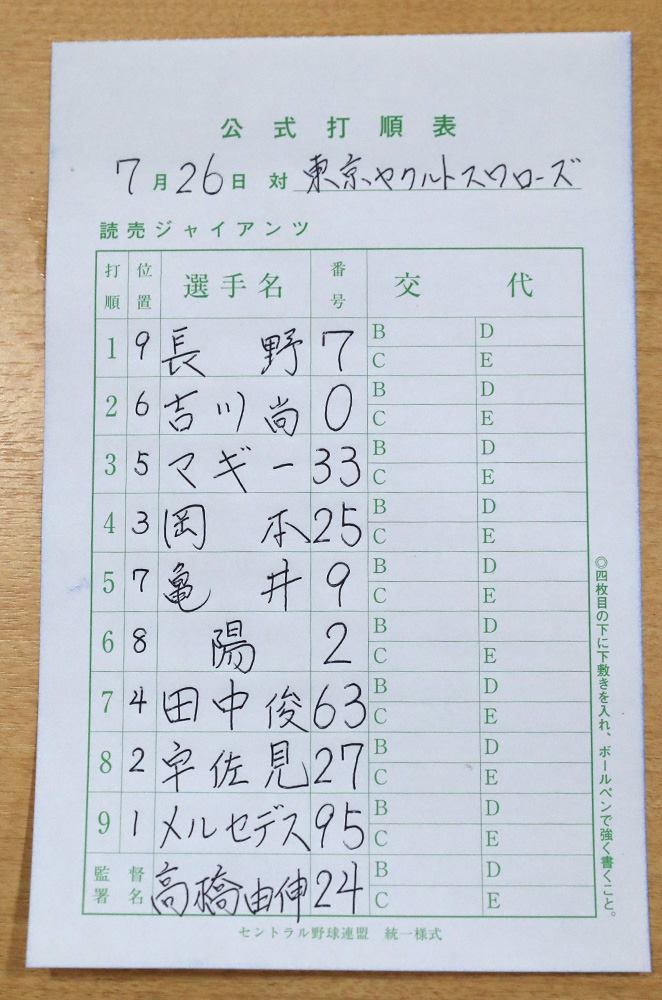 公式打順表
7月26日 対 東京ヤクルトスワローズ
読売ジャイアンツ
打順 位置 選手名 番号 交代
1 9 長野 7 B D C E
2 6 吉川尚 0 B D C E
3 5 マギー 33 B D C E
4 3 岡本 25 B D C E
5 7 亀井 9 B D C E
6 8 陽 2 B D C E
7 4 田中俊 63 B D C E
8 2 宇佐見 27 B D C E
9 1 メルセデス 95 B D C E
監督署名 高橋由伸 24 B D C E
◎四枚目の下に下敷きを入れ、ボールペンで強く書くこと。
セントラル野球連盟 統一様式